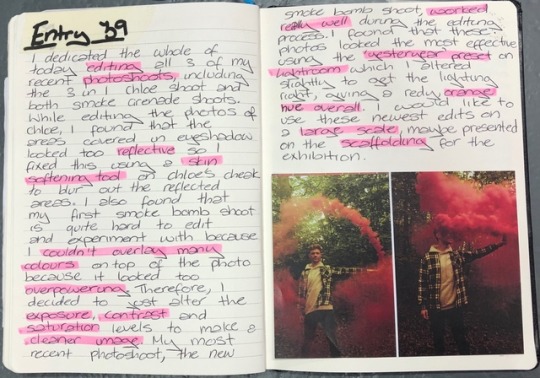 Entry 39
I dedicated the whole of
today editing all 3 of my
recent photoshoots, including
the 3 in 1 chloe shoot and
both smoke grenade shoots.
While editing the photos of
chloe, I found that the
areas covered in eyeshadow
looked too reflective so I
fixed this using a skin
softening tool on chloes cheak
to blur out the reflected
areas. I also found that
my first smoke bomb shoot
is quite hard to edit
and experiment with because
I couldn't overlay many
colours on top of the photo
because it looked too
overpowering. Therefore, I
decided to just alter the
exposure, contrast and
saturation levels to make a
cleaner image. My most
recent photoshoot, the new
smoke bomb shoot, worked
really well during the editing
process. I found that these
photos looked the most effective
using the 'yesteryear' preset on
lightroom which I altered
slightly to get the lighting
right, giving a redy orange
hue overall. I would like to
use these newest edits on
a large scale, maybe presented
on the scaffolding for the
exhibition.